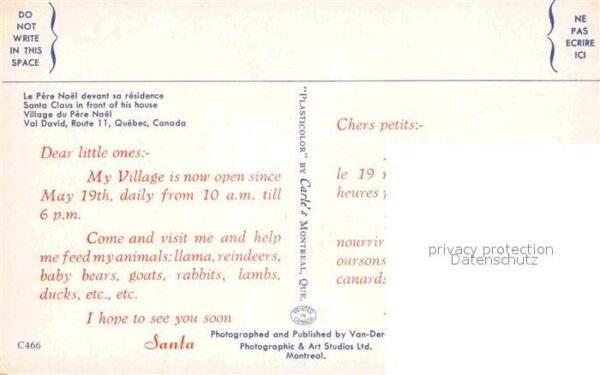 DO
NOT
WRITE
IN THIS
SPACE
NE
PAS
ECRIRE
ICI
Le Père Noël devant sa résidence
Santa Claus in front of his house
Village du Père Noël
Val David, Route 11, Québec, Canada
Dear little ones:-
My Village is now open since
May 19th, daily from 10 a.m. till
6 p.m.
Come and visit me and help
me feed my animals: llama, reindeers,
baby bears, goats, rabbits, lambs,
ducks, etc., etc.
I hope to see you soon
Santa
C466
"PLASTICOLOR" BY Carle's MONTREAL, QUE.
PRINTED IN CANADA
Chers petits:-
le 19
heures
nourrir
oursons
canards
privacy protection
Datenschutz
Photographed and Published by Van-Der
Photographic & Art Studios Ltd.
Montreal.